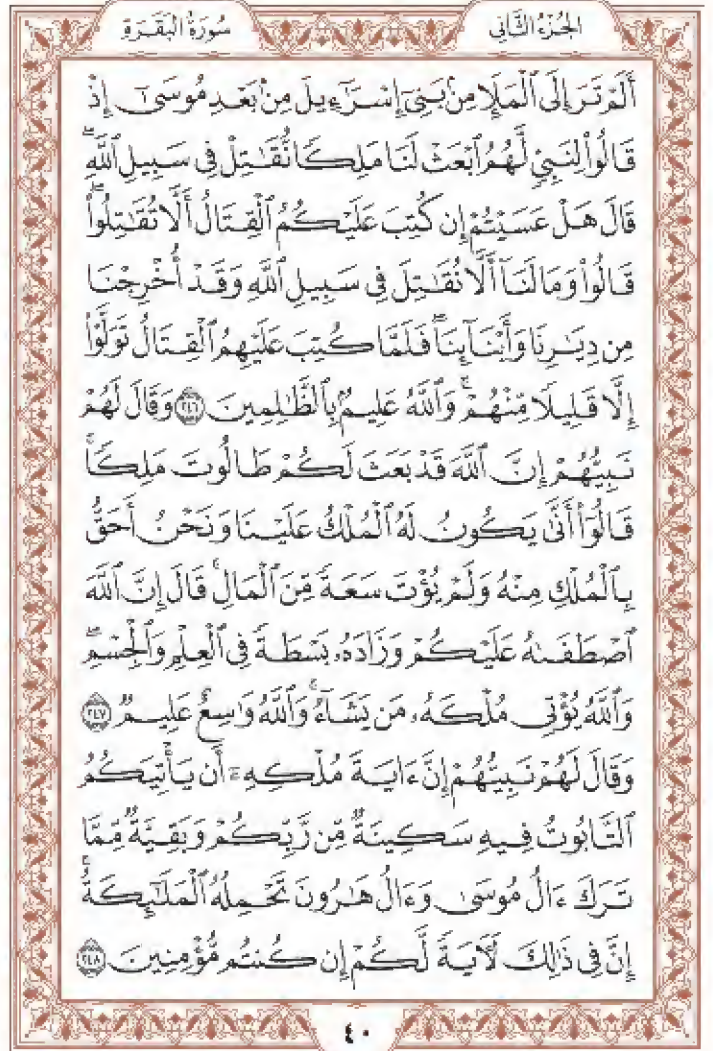 الجُزْءُ الثَّانِي
سُورَةُ الْبَقَرَةِ
أَلَمْ تَرَ إِلَى ٱلْمَلَإِ مِنۢ بَنِىٓ إِسْرَٰٓءِيلَ مِنۢ بَعْدِ مُوسَىٰٓ إِذْ
قَالُوا۟ لِنَبِىٍّ لَّهُمُ ٱبْعَثْ لَنَا مَلِكًا نُّقَٰتِلْ فِى سَبِيلِ ٱللَّهِ ۖ
قَالَ هَلْ عَسَيْتُمْ إِن كُتِبَ عَلَيْكُمُ ٱلْقِتَالُ أَلَّا تُقَٰتِلُوا۟ ۖ
قَالُوا۟ وَمَا لَنَآ أَلَّا نُقَٰتِلَ فِى سَبِيلِ ٱللَّهِ وَقَدْ أُخْرِجْنَا
مِن دِيَٰرِنَا وَأَبْنَآئِنَا ۖ فَلَمَّا كُتِبَ عَلَيْهِمُ ٱلْقِتَالُ تَوَلَّوْا۟
إِلَّا قَلِيلًا مِّنْهُمْ ۗ وَٱللَّهُ عَلِيمٌۢ بِٱلظَّٰلِمِينَ ٢٤٦ وَقَالَ لَهُمْ
نَبِيُّهُمْ إِنَّ ٱللَّهَ قَدْ بَعَثَ لَكُمْ طَالُوتَ مَلِكًا ۚ
قَالُوٓا۟ أَنَّىٰ يَكُونُ لَهُ ٱلْمُلْكُ عَلَيْنَا وَنَحْنُ أَحَقُّ
بِٱلْمُلْكِ مِنْهُ وَلَمْ يُؤْتَ سَعَةً مِّنَ ٱلْمَالِ ۚ قَالَ إِنَّ ٱللَّهَ
ٱصْطَفَىٰهُ عَلَيْكُمْ وَزَادَهُۥ بَسْطَةً فِى ٱلْعِلْمِ وَٱلْجِسْمِ ۖ
وَٱللَّهُ يُؤْتِى مُلْكَهُۥ مَن يَشَآءُ ۚ وَٱللَّهُ وَٰسِعٌ عَلِيمٌ ٢٤٧
وَقَالَ لَهُمْ نَبِيُّهُمْ إِنَّ ءَايَةَ مُلْكِهِۦٓ أَن يَأْتِيَكُمُ
ٱلتَّابُوتُ فِيهِ سَكِينَةٌ مِّن رَّبِّكُمْ وَبَقِيَّةٌ مِّمَّا
تَرَكَ ءَالُ مُوسَىٰ وَءَالُ هَٰرُونَ تَحْمِلُهُ ٱلْمَلَٰٓئِكَةُ ۚ
إِنَّ فِى ذَٰلِكَ لَءَايَةً لَّكُمْ إِن كُنتُم مُّؤْمِنِينَ ٢٤٨
٤٠